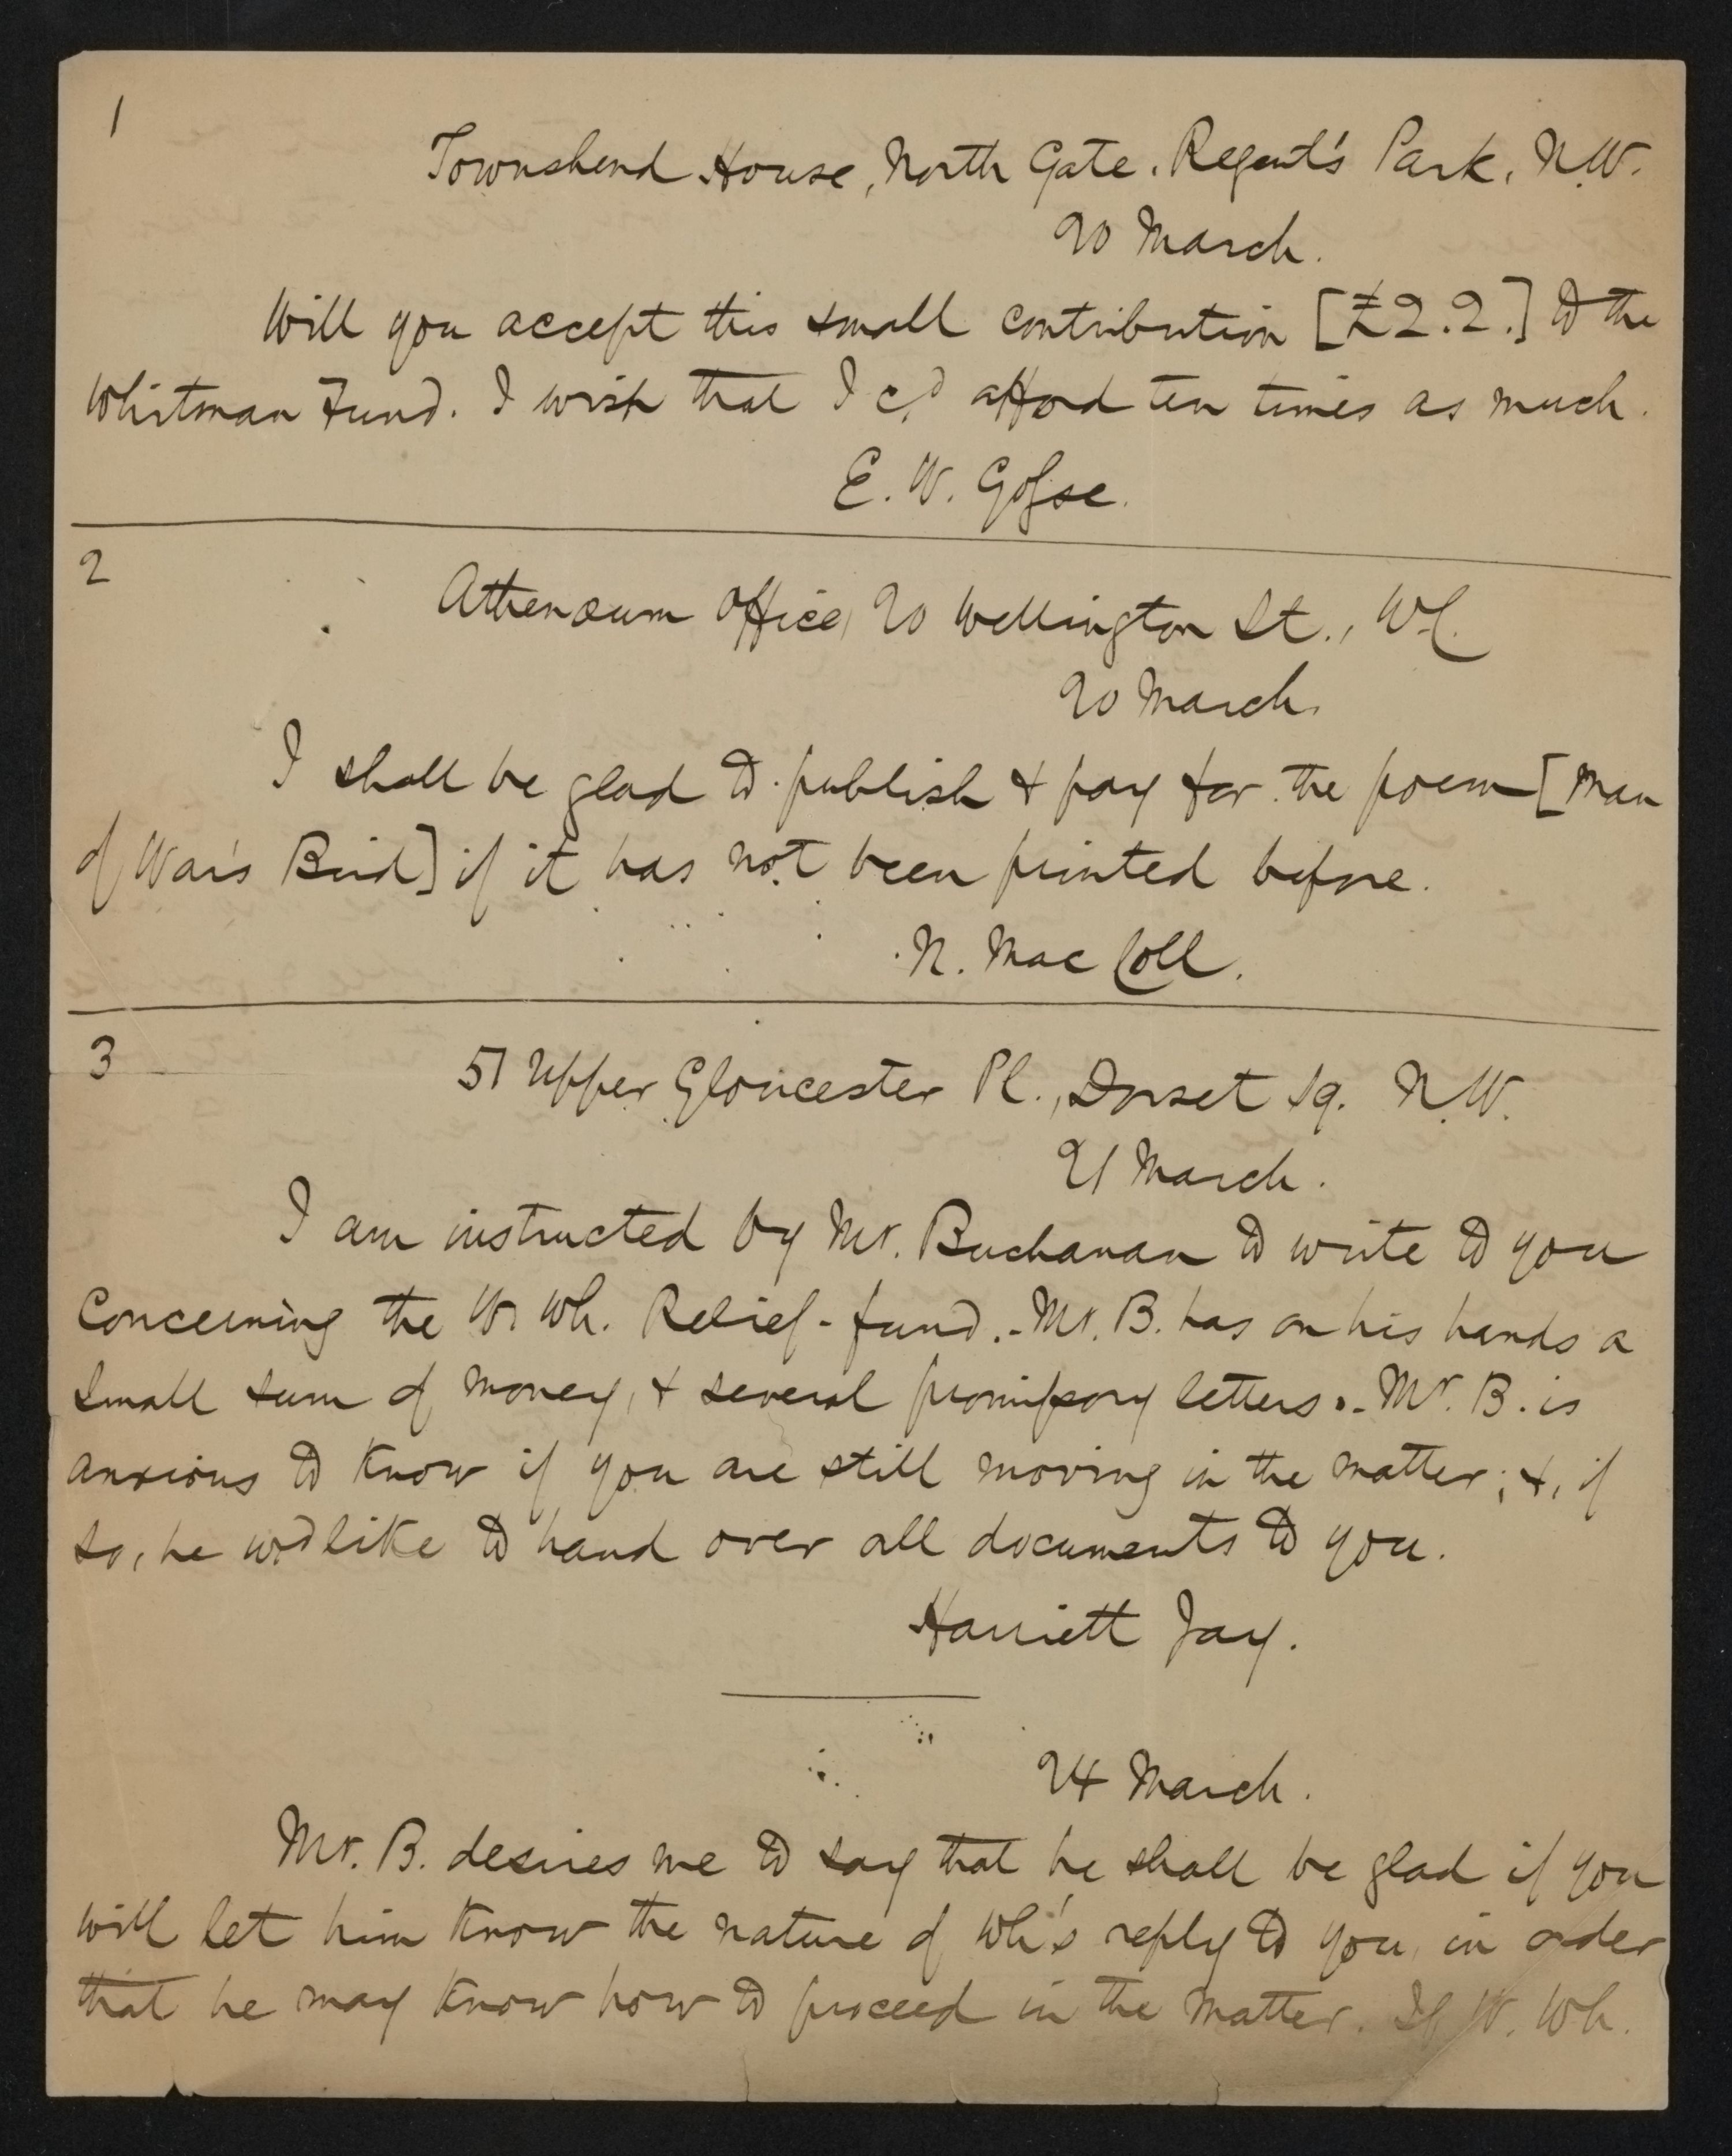 1
Townshend House, North Gate, Regent's Park, N.W.
20 March.
Will you accept this small contribution [£2.2.] to the
Whitman Fund. I wish that I cd afford ten times as much.
E. W. Gosse.
2
Athenæum Office, 20 Wellington St., WC.
20 March.
I shall be glad to publish & pay for the poem [Man
of War's Bird] if it has not been printed before.
N. Mac Coll.
3
51 Upper Gloucester Pl., Dorset Sq. N.W.
21 March.
I am instructed by Mr. Buchanan to write to you
concerning the W. Wh. Relief-fund.-Mr. B. has on his hands a
small sum of money, & several promissory letters.-Mr. B. is
anxious to know if you are still moving in the matter; &, if
so, he wd like to hand over all documents to you.
Harriett Jay.
24 March.
Mr. B. desires me to say that he shall be glad if you
will let him know the nature of Wh's reply to you, in order
that he may know how to proceed in the matter. If W. Wh.